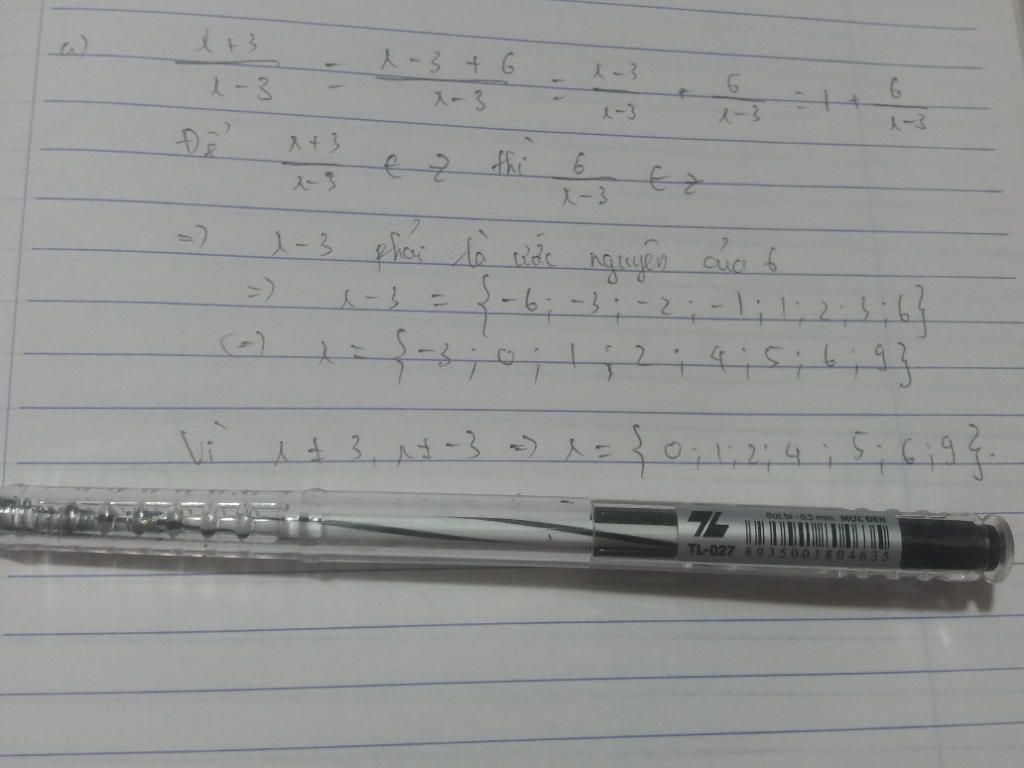 a) x+3/x-3 = x-3+6/x-3 = x-3/x-3 + 6/x-3 = 1 + 6/x-3
Để x+3/x-3 ∈ Z thì 6/x-3 ∈ Z
=) x-3 phải là ước nguyên của 6
=) x-3 = {-6; -3; -2; -1; 1; 2; 3; 6}
(=) x = {-3; 0; 1; 2; 4; 5; 6; 9}
Vì x ≠ 3, x ≠ -3 =) x = {0; 1; 2; 4; 5; 6; 9}.
TL
TL-027
Bút bi - 0.5 mm MỰC ĐEN
8935001804635